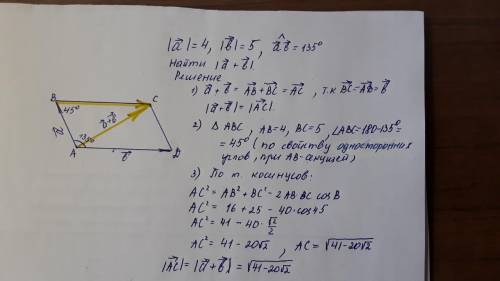 |a⃗|=4, |b⃗|=5, a⃗^b⃗=135°
Найти |a⃗+b⃗|
Решение
1) a⃗+b⃗ = AB⃗+BC⃗=AC⃗, т.к BC⃗=AD⃗=b⃗
|a⃗+b⃗|=|AC⃗|.
2) △ABC, AB=4, BC=5, ∠ABC=180-135°=
=45° (по свойству односторонних
углов, при AB-секущей)
3) По т. косинусов:
AC²=AB²+BC²-2AB·BC cosB
AC²= 16+25 - 40·cos45
AC²= 41-40·√2/2
AC²= 41-20√2, AC=√(41-20√2)
|AC⃗|=|a⃗+b⃗|=√(41-20√2)
B
C
45°
a⃗
a⃗+b⃗
135°
A
b⃗
D